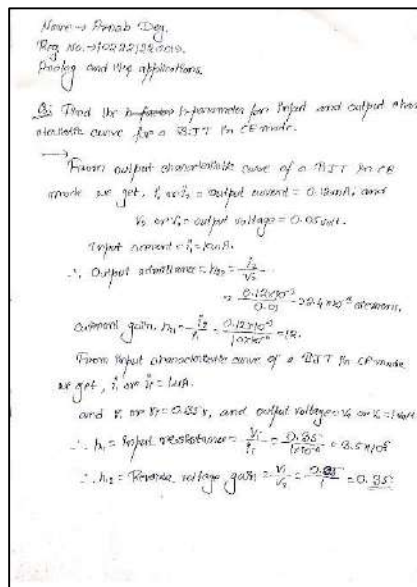 Name → Arnab Dey.
Reg No. → 1022212
Analog and its applications.
Q: Find the h-parameter for input and output char-
cteristic curve for a BJT in CE mode.
→
From output characteristic curve of a BJT in CE
mode we get, i₂ = output current = 0.12mA, and
V₂ or = output voltage = 0.05 volt.
Input current = i₁ = 10μA.
∴ Output admittance = h₂₂ = i₂/V₂
= 0.12×10⁻³/0.05 = 2.4×10⁻³
current gain, h₂₁ = i₂/i₁ = 0.12×10⁻³/10×10⁻⁶ = 12.
From input characteristic curve of a BJT in CE mode
we get, i₁ or = 1μA.
and V₁ or = 0.35 v, and output voltage = V₂ or = 1 volt.
∴ h₁₁ = Input resistance = V₁/i₁ = 0.35/1×10⁻⁶ = 3.5×10⁵
∴ h₁₂ = Reverse voltage gain = V₁/V₂ = 0.35/1 = 0.35